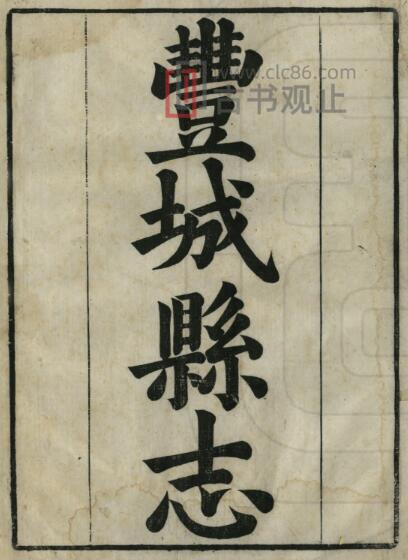 豐城縣志
www.clc86.com
古书观止